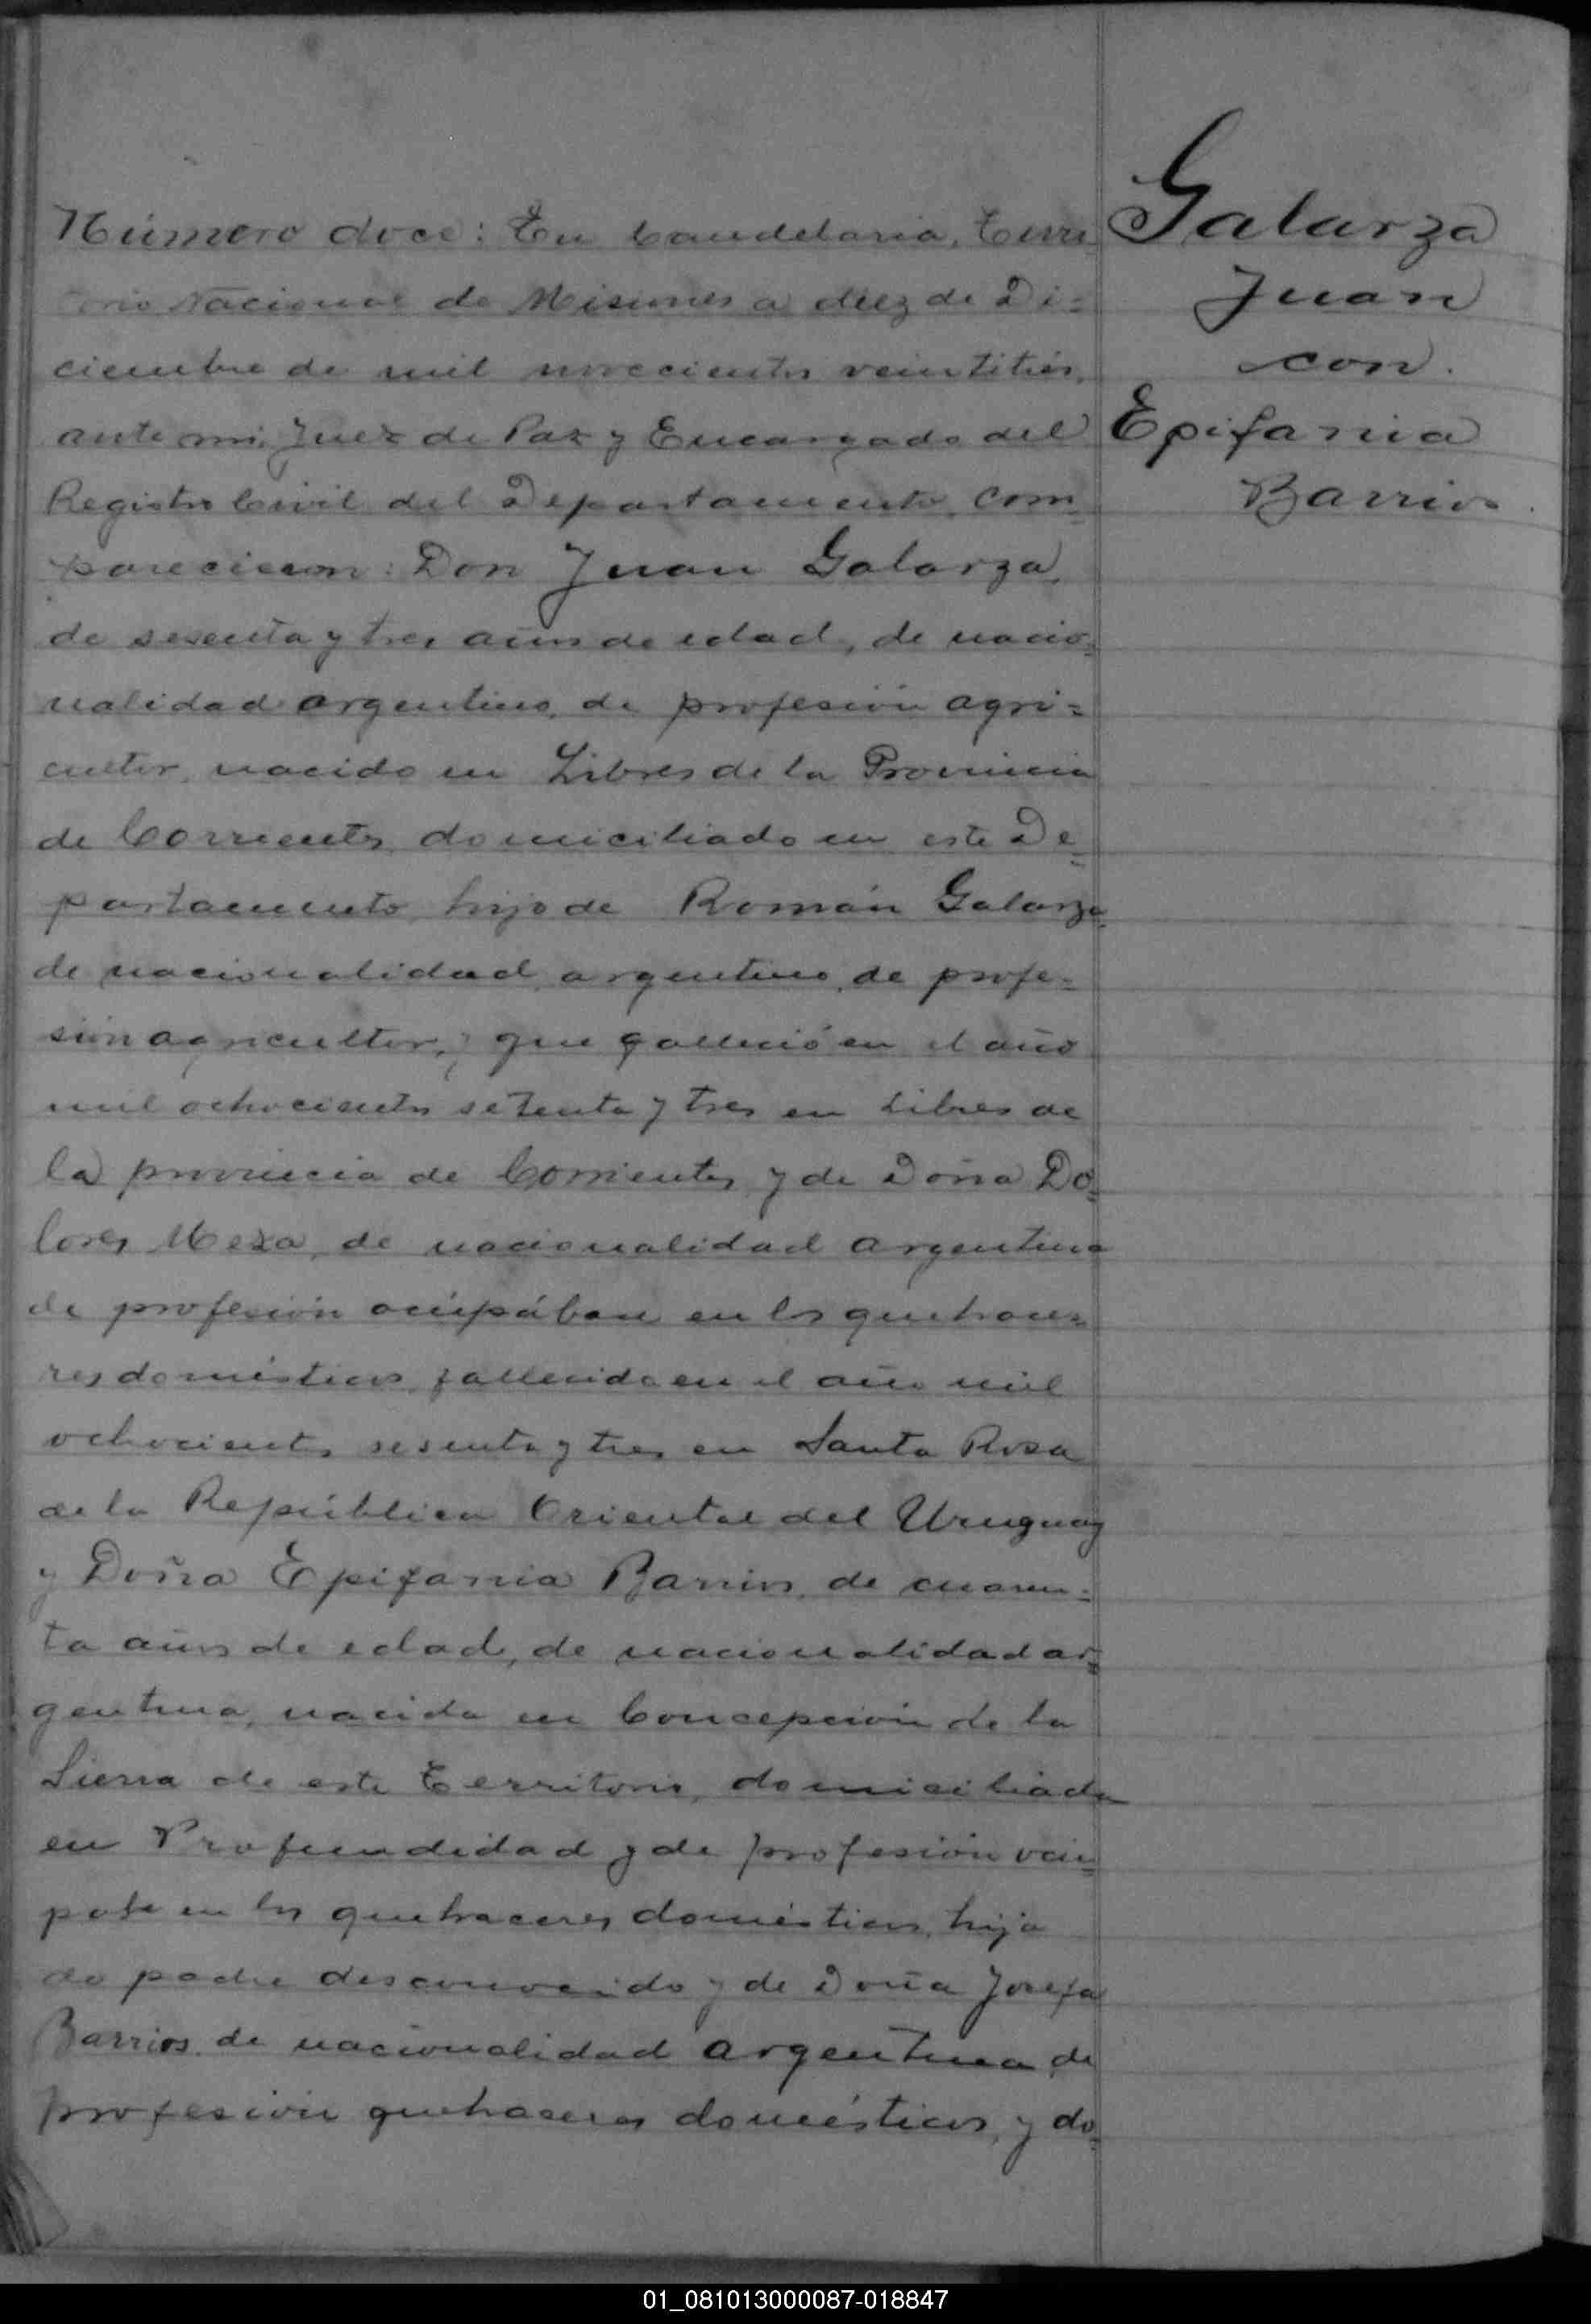 Número doce: En Candelaria, Terri
torio Nacional de Misiones a diez de Di=
ciembre de mil novecientos veintitrés,
ante mi, Juez de Paz y Encargado del
Registro Civil del Departamento, com=
parecieron: Don Juan Galarza,
de sesenta y tres años de edad, de nacio=
nalidad argentino, de profesión agri=
cultor, nacido en Libres de la Provincia
de Corrientes, domiciliado en este De=
partamento, hijo de Román Galarza
de nacionalidad argentino, de profe=
sión agricultor, que falleció en el año
mil ochocientos setenta y tres en Libres de
la provincia de Corrientes, y de Doña Do=
lores Meza, de nacionalidad argentina
de profesión ocupábase en los quehace=
res domésticos, fallecida en el año mil
ochocientos sesenta y tres en Santa Rosa
de la República Oriental del Uruguay
y Doña Epifania Barrios, de cuaren=
ta años de edad, de nacionalidad ar=
gentina, nacida en Concepción de la
Sierra de este Territorio, domiciliada
en Profundidad y de profesión ocú=
pase en los quehaceres domésticos, hija
de padre desconocido y de Doña Josefa
Barrios, de nacionalidad argentina, de
profesión quehaceres domésticos, y do=
Galarza
Juan
con.
Epifania
Barrios.
01_081013000087-018847